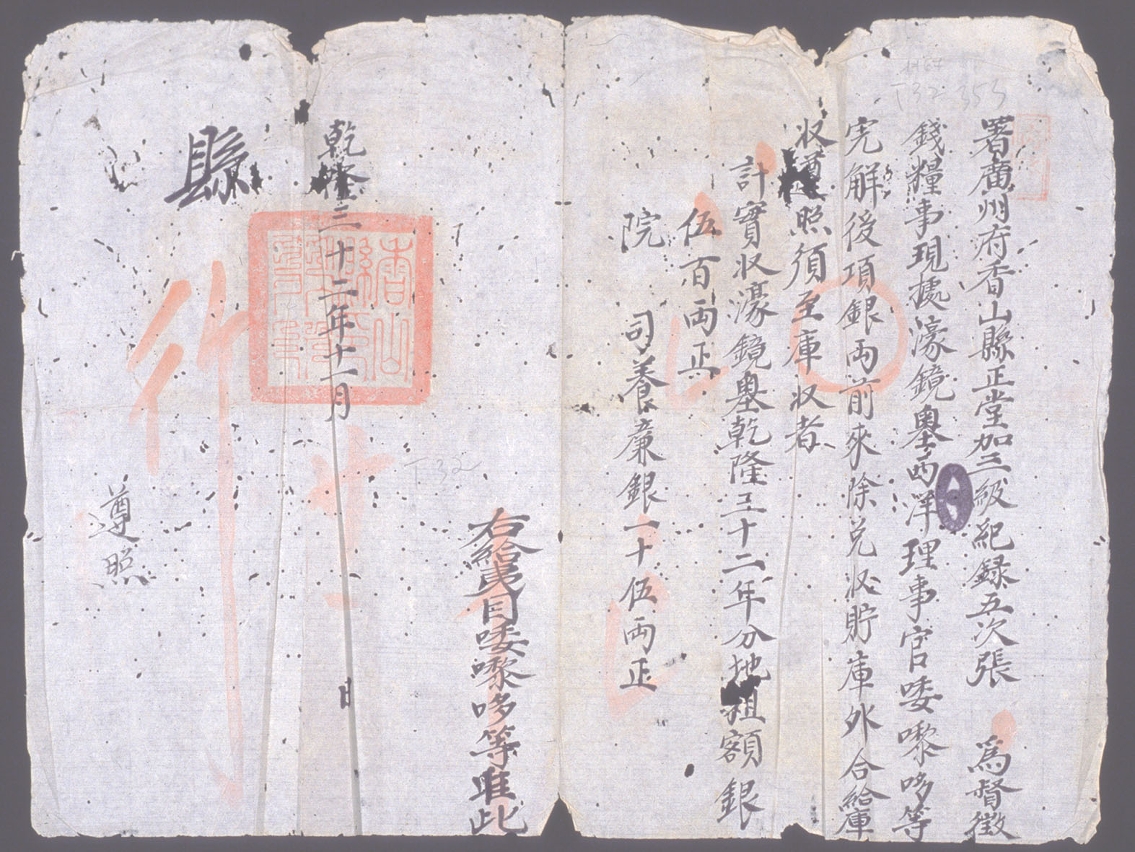 署廣州府香山縣正堂加三級紀錄五次張 爲督徵
錢糧事現據濠鏡墺西洋理事官唩嚟哆等
完解後項銀両前來除兑收貯庫外合給庫
收遵照須至庫收者
計實收濠鏡墺乾隆三十二年分地租額銀
伍百両正
院 司養廉銀一十伍両正
右給夷目唩嚟哆等准此
乾隆三十二年十一月 日
縣 行
遵照
T32
T32 355